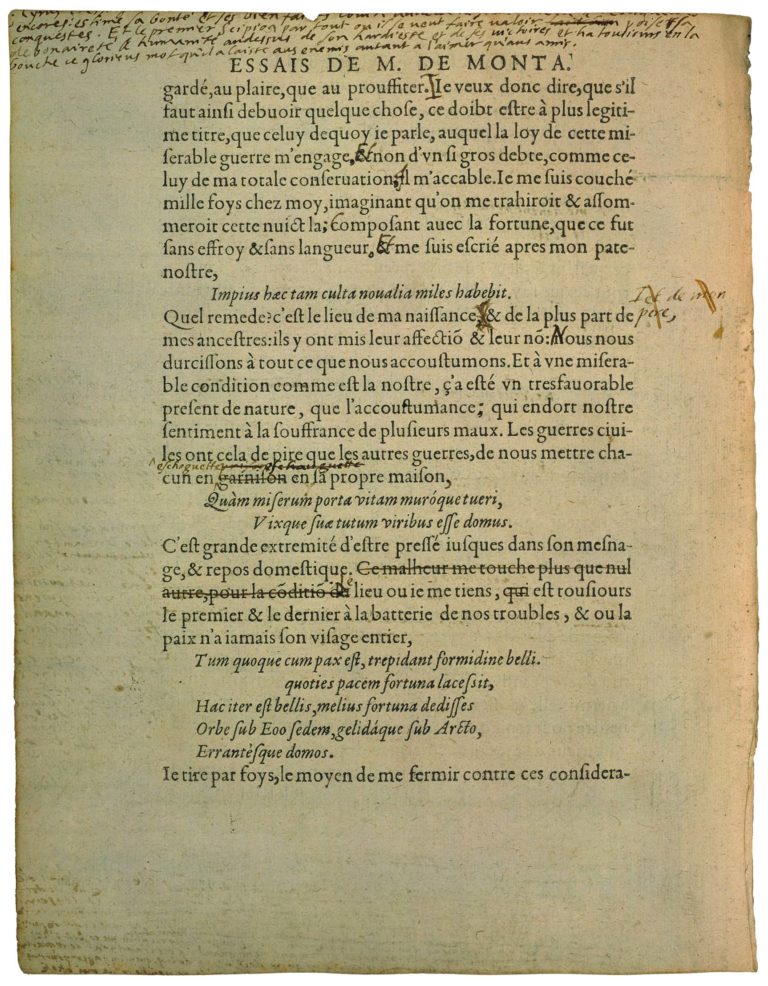 encores estime sa bonté et ses bien faicts
conquestes. Et le premier scipion par tout ou il se veut faire valoir poise sa
debonaireté & humanité audessus de son hardiesse et de ses victoires et ha tousiours en la
bouche ce glorieus mot qu'il a laissé aus enemis autant a l'aimer qu'aus amis.
ESSAIS DE M. DE MONTA.
gardé, au plaire, que au prouffiter. Ie veux donc dire, que s'il
faut ainsi debuoir quelque chose, ce doibt estre à plus legiti-
me titre, que celuy dequoy ie parle, auquel la loy de cette mi-
serable guerre m'engage, Et non d'vn si gros debte, comme ce-
luy de ma totale conseruation: Il m'accable. Ie me suis couché
mille foys chez moy, imaginant qu'on me trahiroit & assom-
meroit cette nuict la; Composant auec la fortune, que ce fut
sans effroy & sans langueur. Et me suis escrié apres mon pate-
nostre,
Impius hæc tam culta noualia miles habebit.
Quel remede? c'est le lieu de ma naissance, & de la plus part de
pere,
mes ancestres: ils y ont mis leur affectiõ & leur nõ: Nous nous
durcissons à tout ce que nous accoustumons. Et à vne misera-
ble condition comme est la nostre, ç'a esté vn tresfauorable
present de nature, que l'accoustumance; qui endort nostre
sentiment à la souffrance de plusieurs maux. Les guerres ciui-
les ont cela de pire que les autres guerres, de nous mettre cha-
eschoguette
cun en garnison en sa propre maison,
Quàm miserum porta vitam muróque tueri,
Vixque suæ tutum viribus esse domus.
C'est grande extremité d'estre pressé iusques dans son mesna-
ge, & repos domestique. Ce malheur me touche plus que nul
autre, pour la cõditiõ du Le lieu ou ie me tiens, qui est tousiours
le premier & le dernier à la batterie de nos troubles, & ou la
paix n'a iamais son visage entier,
Tum quoque cum pax est, trepidant formidine belli.
quoties pacem fortuna lacessit,
Hac iter est bellis, melius fortuna dedisses
Orbe sub Eoo sedem, gelidáque sub Arcto,
Errantésque domos.
Ie tire par foys, le moyen de me fermir contre ces considera-